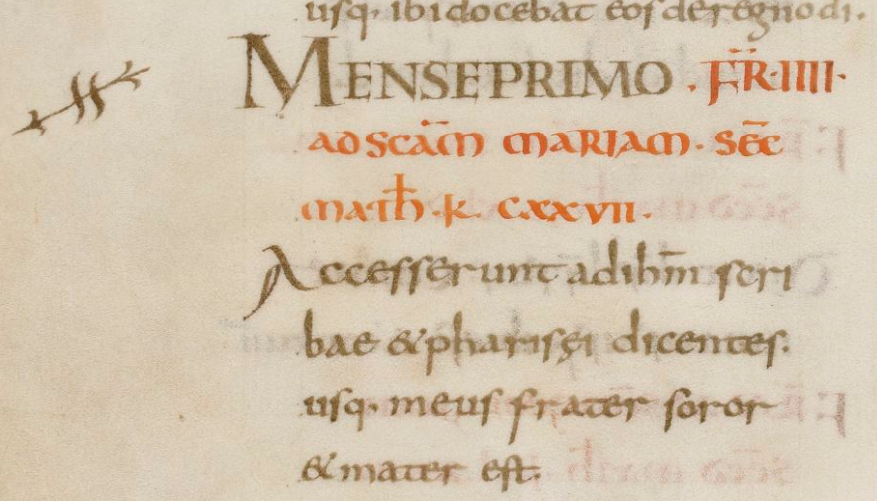 usq· ibi docebat eos de regno di.
MENSE PRIMO . F̄R̄·IIII·
AD SCĀM MARIAM· SĒC
MATH̄·K· CXXVII·
Accesserunt ad ihm̄ scri
bae & pharisęi dicentes.
usq· meus frater soror
& mater est.